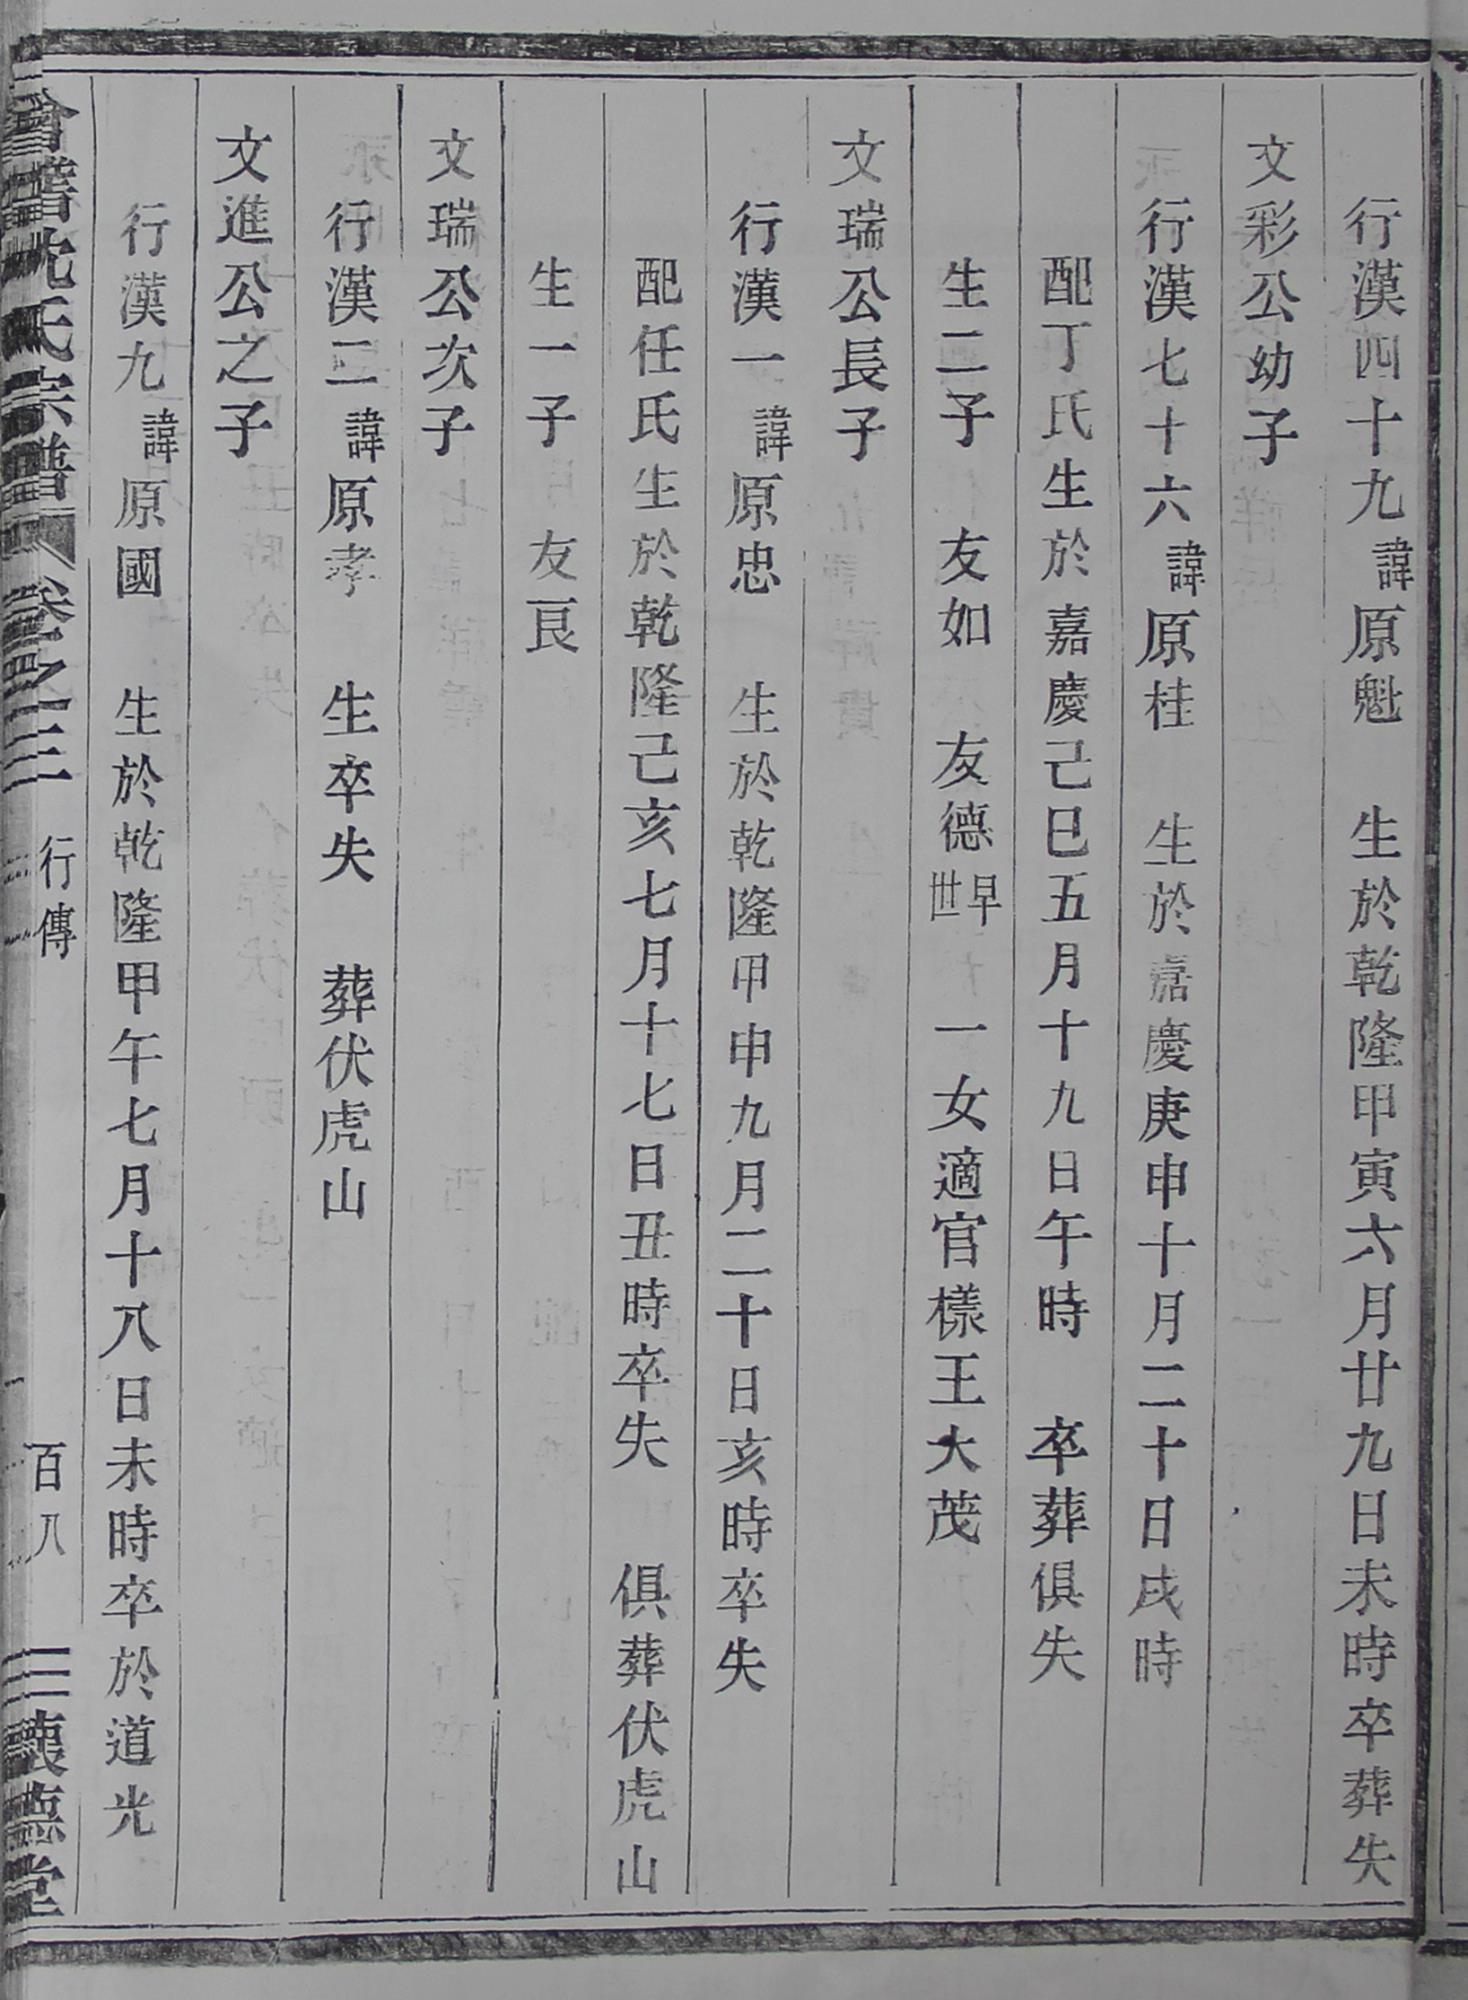 行漢四十九諱原魁　生於乾隆甲寅六月廿九日未時卒葬失
文彩公幼子
行漢七十六諱原桂　生於嘉慶庚申十月二十日戌時
配丁氏生於嘉慶己巳五月十九日午時　卒葬俱失
生二子　友如　友德早世　一女適官樣王大茂
文瑞公長子
行漢一諱原忠　生於乾隆甲申九月二十日亥時卒失
配任氏生於乾隆己亥七月十七日丑時卒失　俱葬伏虎山
生一子　友艮
文瑞公次子
行漢二諱原孝　生卒失　葬伏虎山
文進公之子
行漢九諱原國　生於乾隆甲午七月十八日未時卒於道光
會稽沈氏宗譜　卷之三　行傳　百八　懷德堂